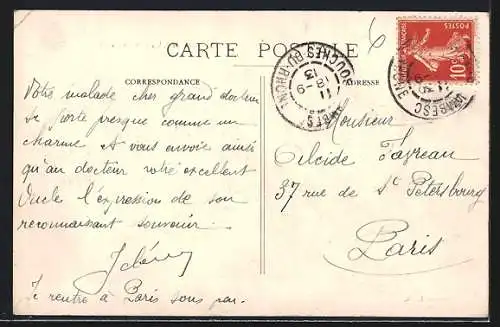 CARTE POSTALE
6
CORRESPONDANCE
ADRESSE
POSTES
10
BOUCHES-DU-RHONE
18-9
13
11
LAMBESC
Votre malade cher grand docteur
se porte presque comme un
charme et vous envoie ainsi
qu'au docteur votre excellent
Oncle l'expression de son
reconnaissant souvenir.
Je rentre à Paris sous peu.
Monsieur
Alcide Favreau
37 rue de St Petersbourg
Paris